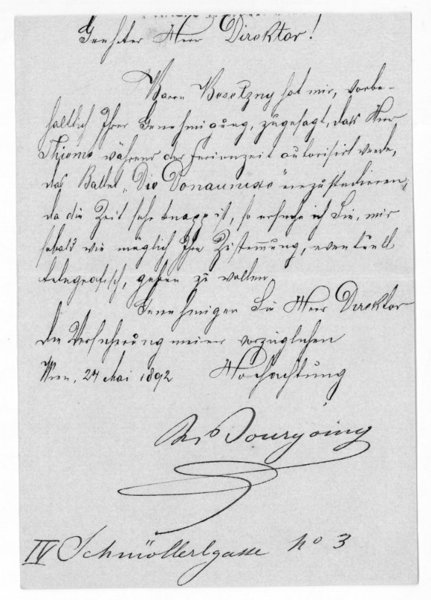 Geehrter Herr Direktor!
Baron Bezetzny hat mir, vorbe-
haltlich Ihrer Genehmigung, zugesagt, daß Herr
während der Ferienzeit autorisirt werde,
das Ballet „Die Donaunixe" einzustudieren,
da die Zeit sehr knapp ist, so ersuche ich Sie, mir
sobald wie möglich Ihre Zustimmung, eventuell
telegrafisch, geben zu wollen.
Genehmigen Sie Herr Direktor
die Versicherung meiner vorzüglichen
Wien, 24 Mai 1892 Hochachtung
Bourgoing
IV Schmöllerlgasse No 3